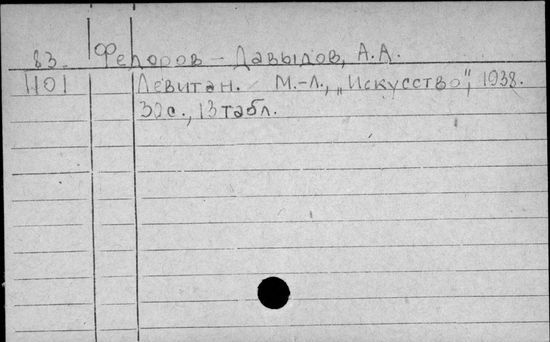 83. Федоров - Давыдов, А.А.
1101 Левитан. М.-Л., „Искусство", 1938.
32с., 13 табл.